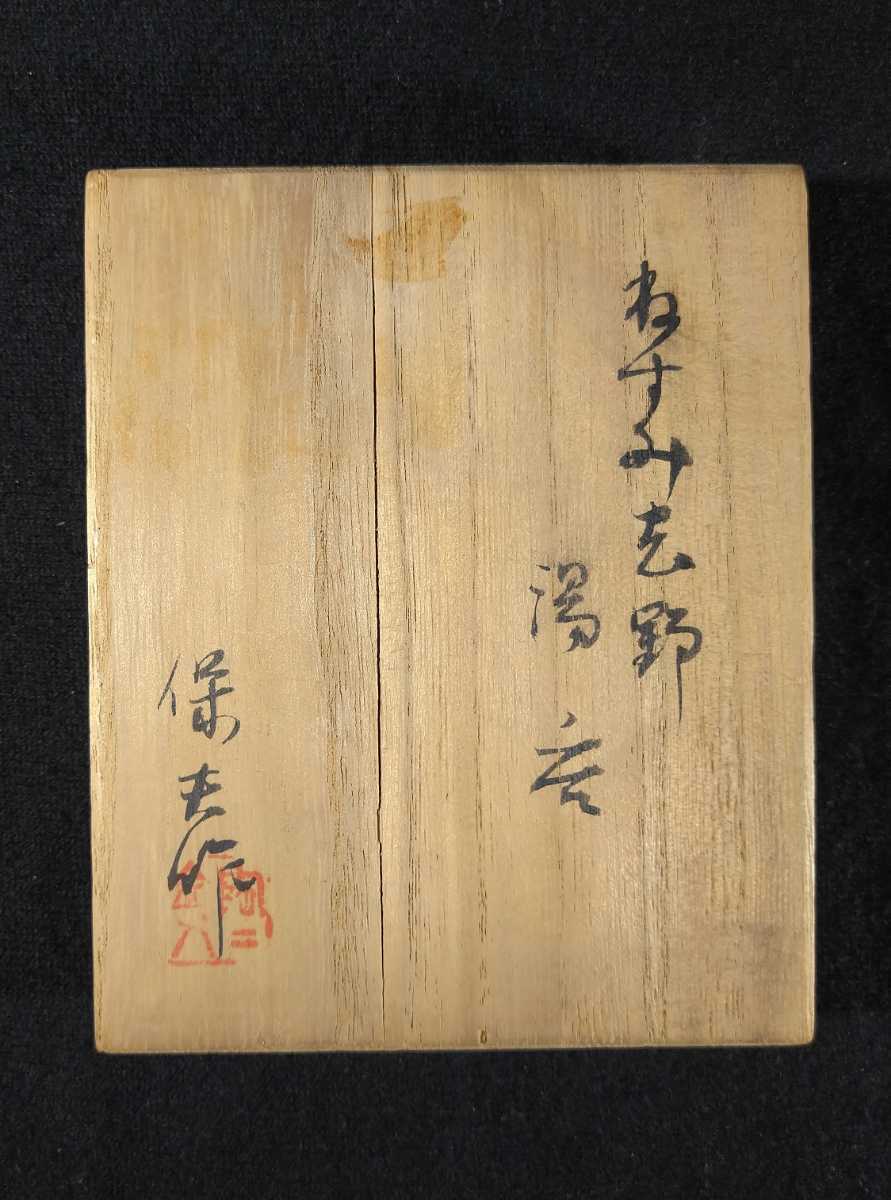 ねずみ志野
湯呑
保夫作